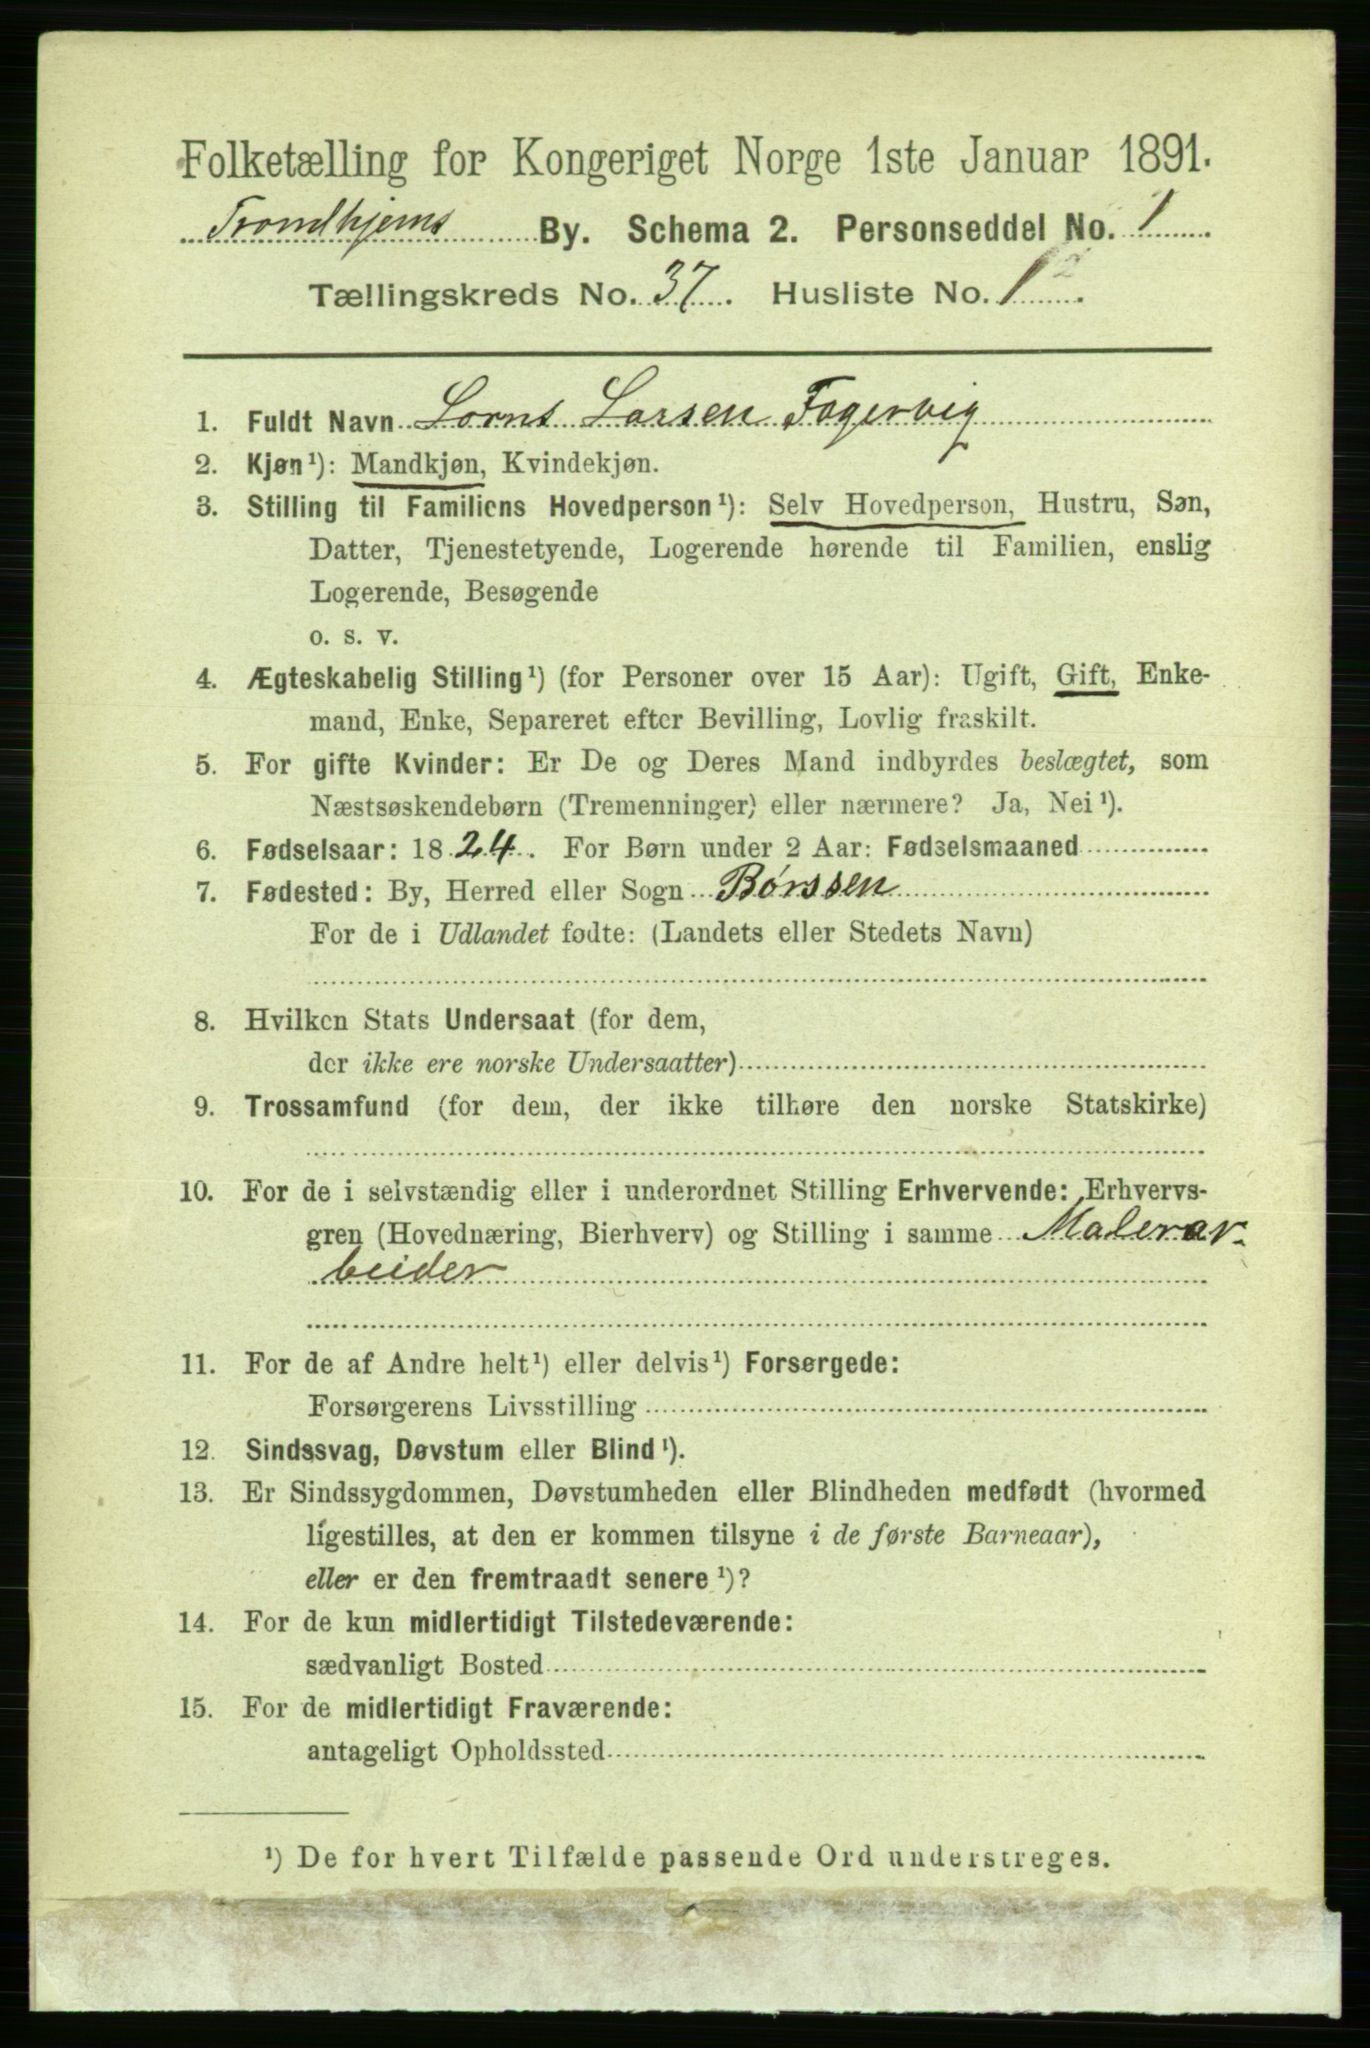 Folketælling for Kongeriget Norge 1ste Januar 1891.
Trondhjems By. Schema 2. Personseddel No. 1
Tællingskreds No. 37. Husliste No. 1
1. Fuldt Navn Lorns Larsen Fagervig
2. Kjøn¹): Mandkjøn, Kvindekjøn.
3. Stilling til Familiens Hovedperson¹): Selv Hovedperson, Hustru, Søn,
Datter, Tjenestetyende, Logerende hørende til Familien, enslig
Logerende, Besøgende
o. s. v.
4. Ægteskabelig Stilling¹) (for Personer over 15 Aar): Ugift, Gift, Enke-
mand, Enke, Separeret efter Bevilling, Lovlig fraskilt.
5. For gifte Kvinder: Er De og Deres Mand indbyrdes beslægtet, som
Næstsøskendebørn (Tremenninger) eller nærmere? Ja, Nei¹).
6. Fødselsaar: 1824. For Børn under 2 Aar: Fødselsmaaned
7. Fødested: By, Herred eller Sogn Børssen
For de i Udlandet fødte: (Landets eller Stedets Navn)
8. Hvilken Stats Undersaat (for dem,
der ikke ere norske Undersaatter)
9. Trossamfund (for dem, der ikke tilhøre den norske Statskirke)
10. For de i selvstændig eller i underordnet Stilling Erhvervende: Erhvervs-
gren (Hovednæring, Bierhverv) og Stilling i samme Malerar-
beider
11. For de af Andre helt¹) eller delvis¹) Forsørgede:
Forsørgerens Livsstilling
12. Sindssvag, Døvstum eller Blind¹).
13. Er Sindssygdommen, Døvstumheden eller Blindheden medfødt (hvormed
ligestilles, at den er kommen tilsyne i de første Barneaar),
eller er den fremtraadt senere¹)?
14. For de kun midlertidigt Tilstedeværende:
sædvanligt Bosted
15. For de midlertidigt Fraværende:
antageligt Opholdssted
¹) De for hvert Tilfælde passende Ord understreges.